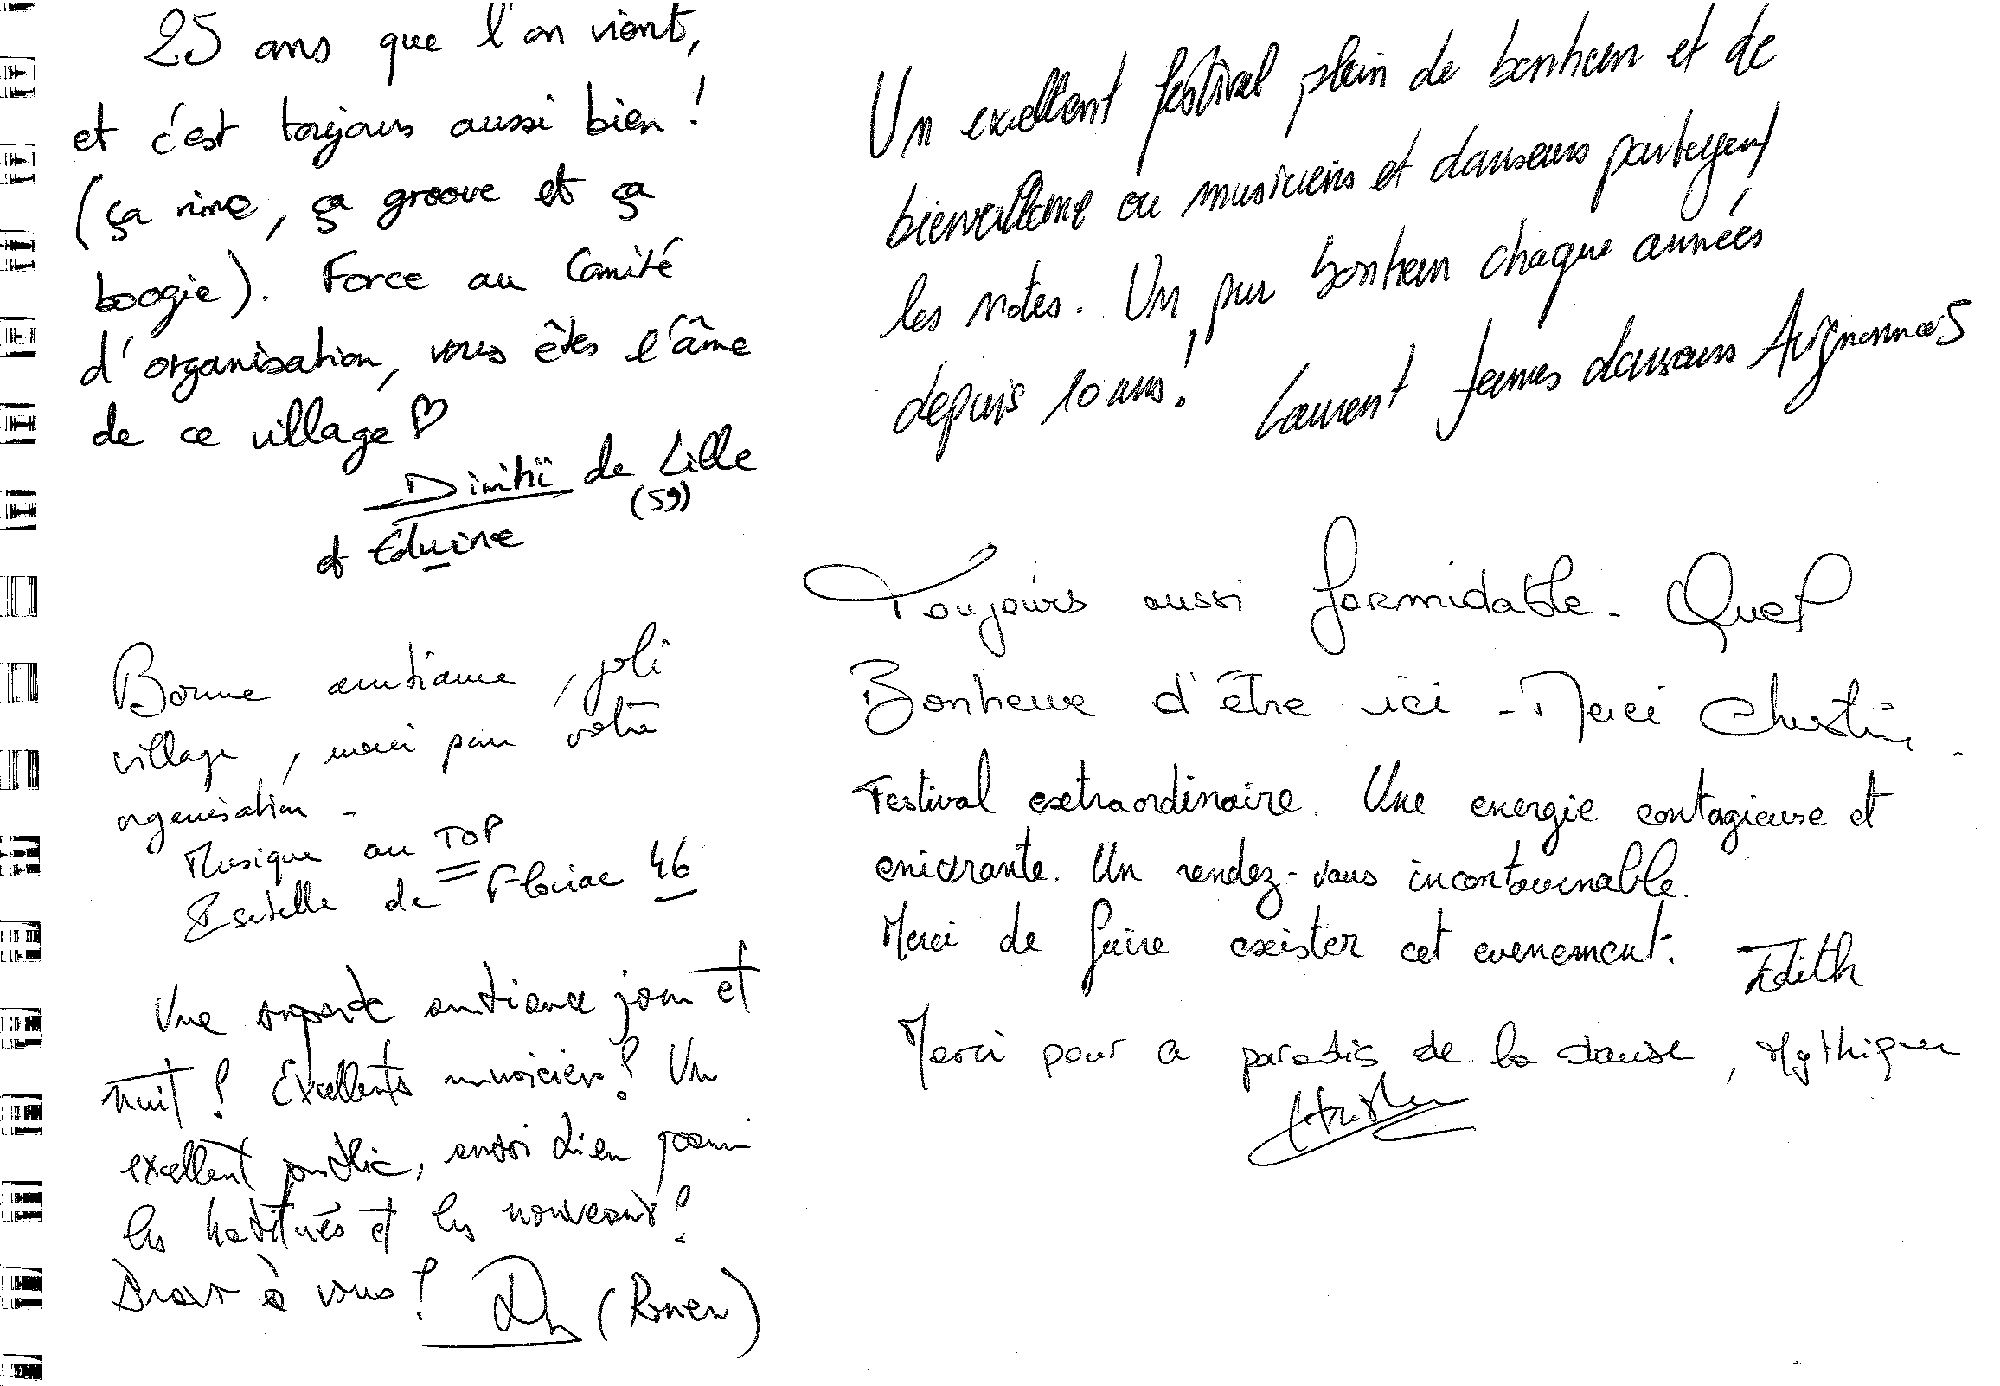 25 ans que l'on vient,
et c'est toujours aussi bien !
(ça rime, ça groove et ça
boogie). Force au Comité
d'organisation, vous êtes l'âme
de ce village ♡
Dimitri de Lille
(59)
et Eduine
Bonne ambiance, joli
village, merci pour votre
organisation -
Musique au TOP
de Floirac 46
Une superbe ambiance jour et
nuit ! Excellents musiciens ! Un
excellent public, aussi bien parmi
les habitués et les nouveaux !
Bravo à vous ! (Rouen)
Un excellent festival plein de bonheur et de
bienveillance ou musiciens et danseurs partagent
les notes. Un pur bonheur chaque années
depuis 10 ans ! Laurent danseurs Avignonnais
Toujours aussi formidable - Quel
Bonheur d'être ici - Merci
Festival extraordinaire. Une energie contagieuse et
enivrante. Un rendez-vous incontournable.
Merci de faire exister cet evenement.
Edith
Merci pour ce paradis de la danse, Mythique